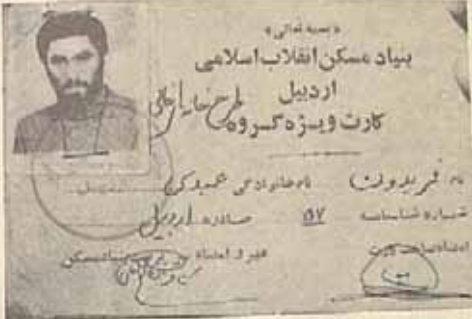 «بسمه تعالی»
بنیاد مسکن انقلاب اسلامی
اردبیل
کارت ویژه گروه
نام فریدون نام خانوادگی
شماره شناسنامه ۵۷ صادره اردبیل
امضاء صاحب کارت مهر و امضاء بنیاد مسکن